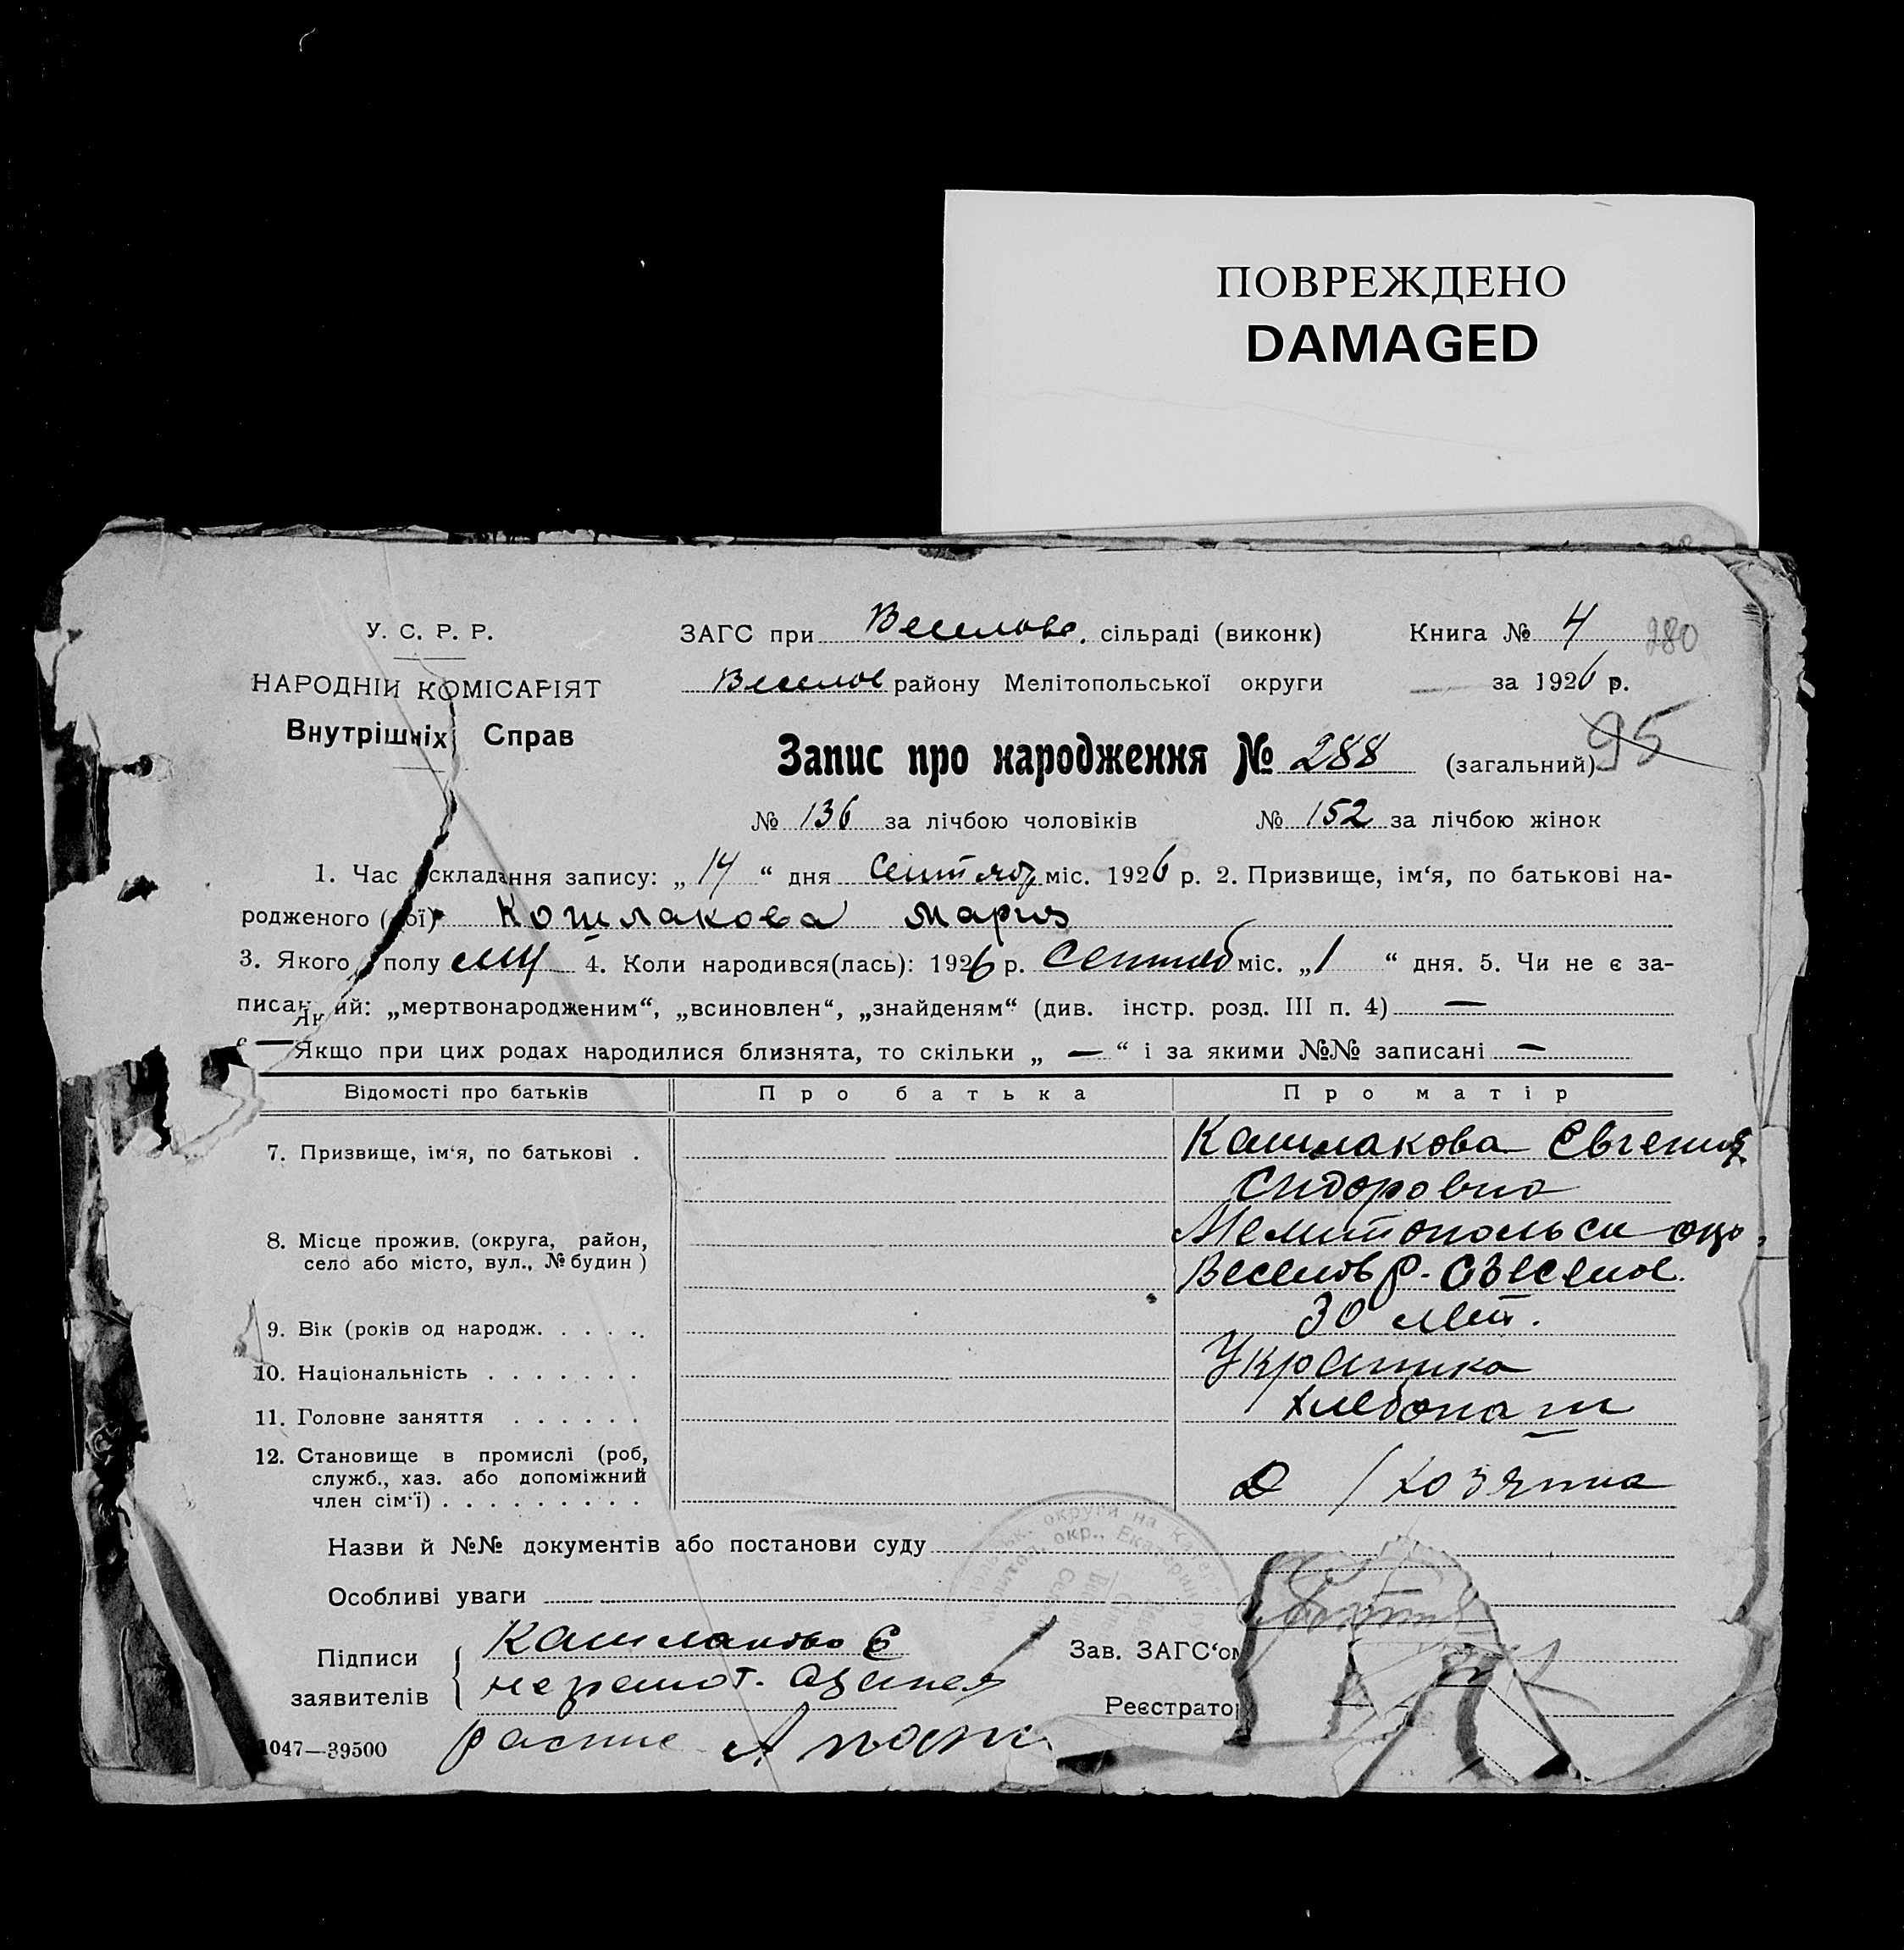 ПОВРЕЖДЕНО
DAMAGED
У. С. Р. Р.
НАРОДНІЙ КОМІСАРІЯТ
Внутрішніх Справ
ЗАГС при Веселов. сільраді (виконк)
Книга № 4 280
Веселов району Мелітопольської округи
за 1926 р.
Запис про народження № 288 (загальний) 95
№ 136 за лічбою чоловіків № 152 за лічбою жінок
1. Час складання запису: „ 14 “ дня Сентябр міс. 1926 р. 2. Призвище, ім‘я, по батькові на-
родженого (ої) Кошлакова Мария
3. Якого полу 4. Коли народився(лась): 1926 р. Сентяб міс. „ 1 “ дня. 5. Чи не є за-
писаний: „мертвонародженим“, „всиновлен“, „знайденям“ (див. інстр. розд. III п. 4) —
Як
Якщо при цих родах народилися близнята, то скільки „ — “ і за якими №№ записані —
Відомості про батьків Про батька Про матір
7. Призвище, ім‘я, по батькові . Кашлакова Евгения
Сидоровна
8. Місце прожив. (округа, район, Мелитопольск окр.
село або місто, вул., № будин ) Веселов р. с Веселое.
9. Вік (років од народж. . . . . 30 лет.
10. Національність . . . . . . . Украинка
11. Головне заняття . . . . . . Хлебопаш
12. Становище в промислі (роб,
служб., хаз. або допоміжний
член сім‘ї) . . . . . . . . . Хозяйка
Назви й №№ документів або постанови суду
Особливі уваги
Підписи
заявителів
Кашлакова Е
неграмот.
распис
Зав. ЗАГС‘ом
Реєстратор
1047—39500